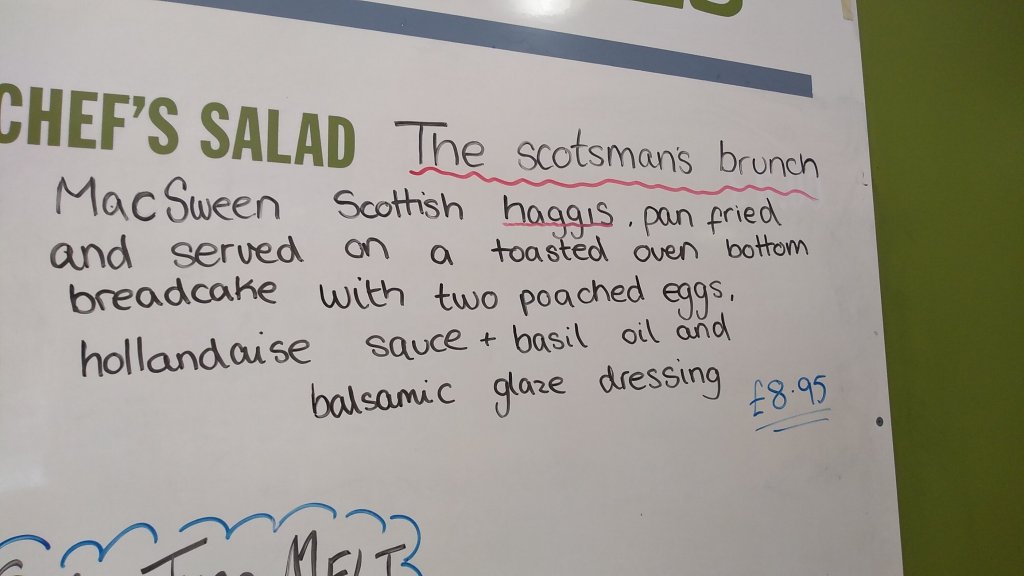 CHEF'S SALAD The scotsman's brunch
MacSween Scottish haggis, pan fried
and served on a toasted oven bottom
breadcake with two poached eggs,
hollandaise sauce + basil oil and
balsamic glaze dressing £8.95
MELT